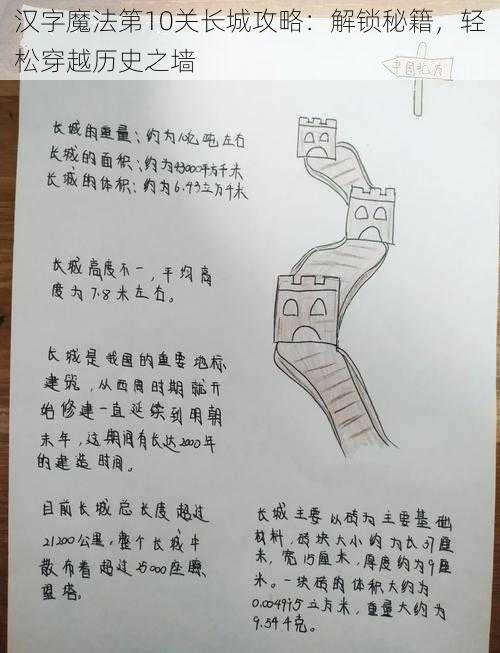 汉字魔法第10关长城攻略：解锁秘籍，轻
松穿越历史之墙
中国北方
长城的重量：约为1亿吨左右
长城的面积：约为43000平方千米
长城的体积：约为6.43立方千米
长城高度不一，平均高
度为7.8米左右。
长城是我国的重要地标
建筑，从西周时期就开
始修建一直延续到明朝
末年，这期间有长达2000年
的建造时间。
目前长城总长度超过
21200公里，整个长城中
散布着超过25000座瞭
望塔。
长城主要以砖为主要基础
材料，砖块大小约为长37厘
米，宽15厘米，厚度约为9厘
米。一块砖的体积大约为
0.004995立方米，重量大约为
9.54千克。